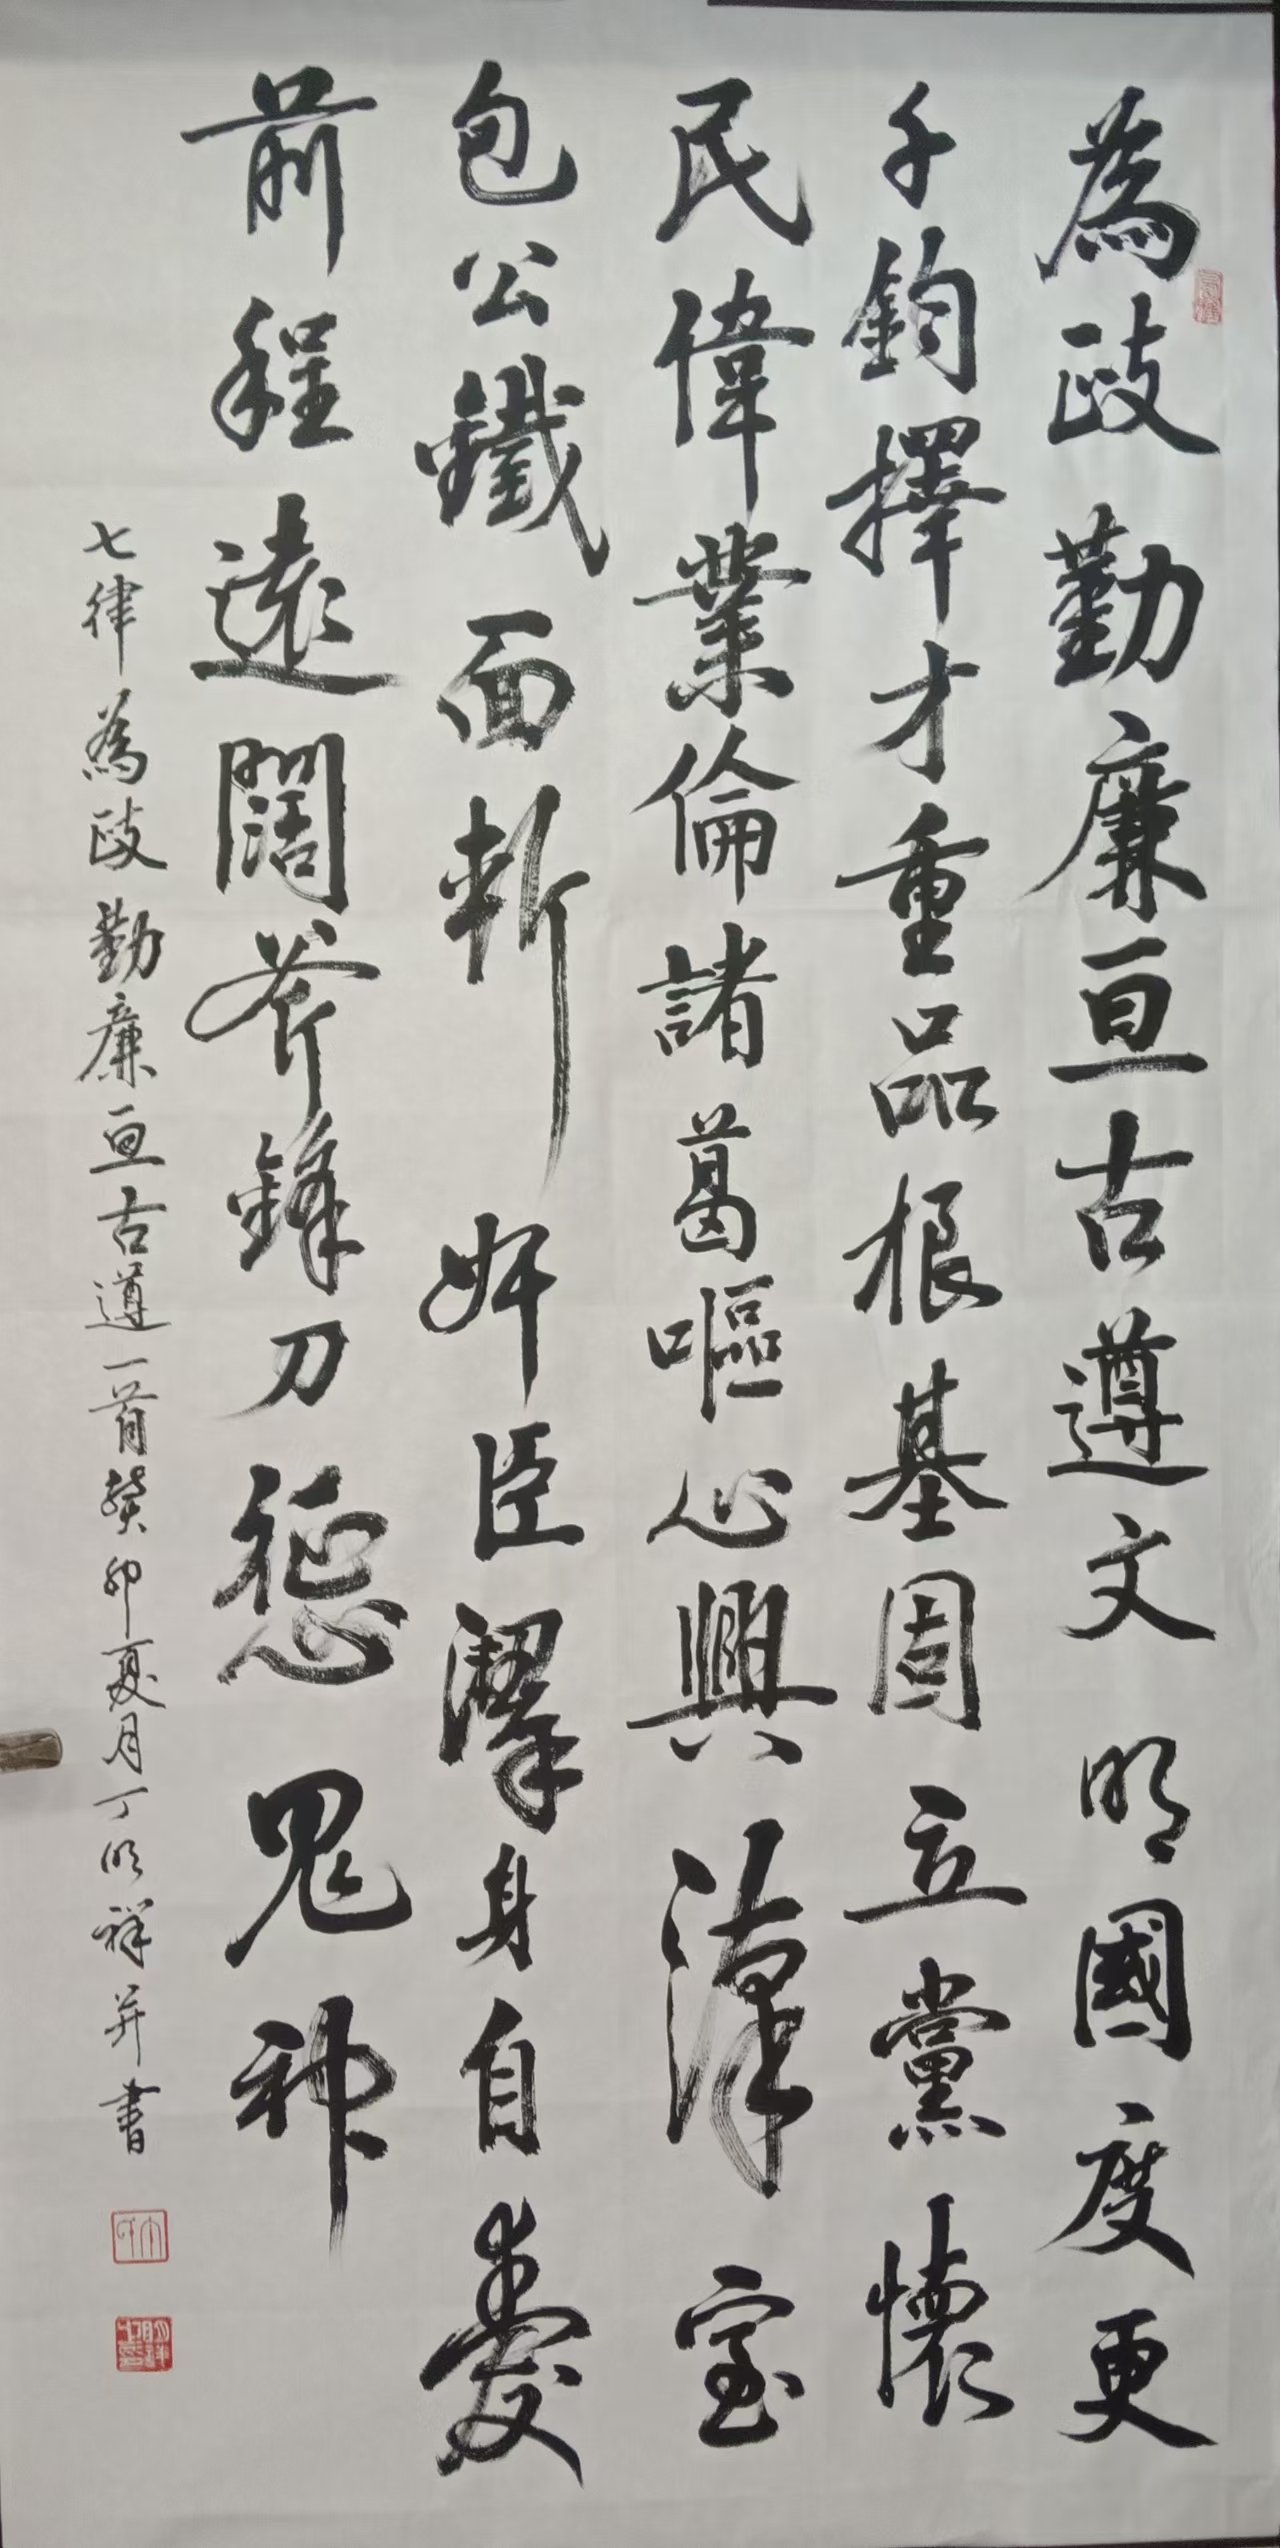 為政勤廉亘古遵文明國度更
千鈞擇才重品根基固立黨懷
民偉業倫諸葛嘔心興漢室
包公鐵面斬奸臣潔身自愛
前程遠闊斧鋒刀懲鬼神
七律為政勤廉亘古遵一首癸卯夏月丁明祥并書